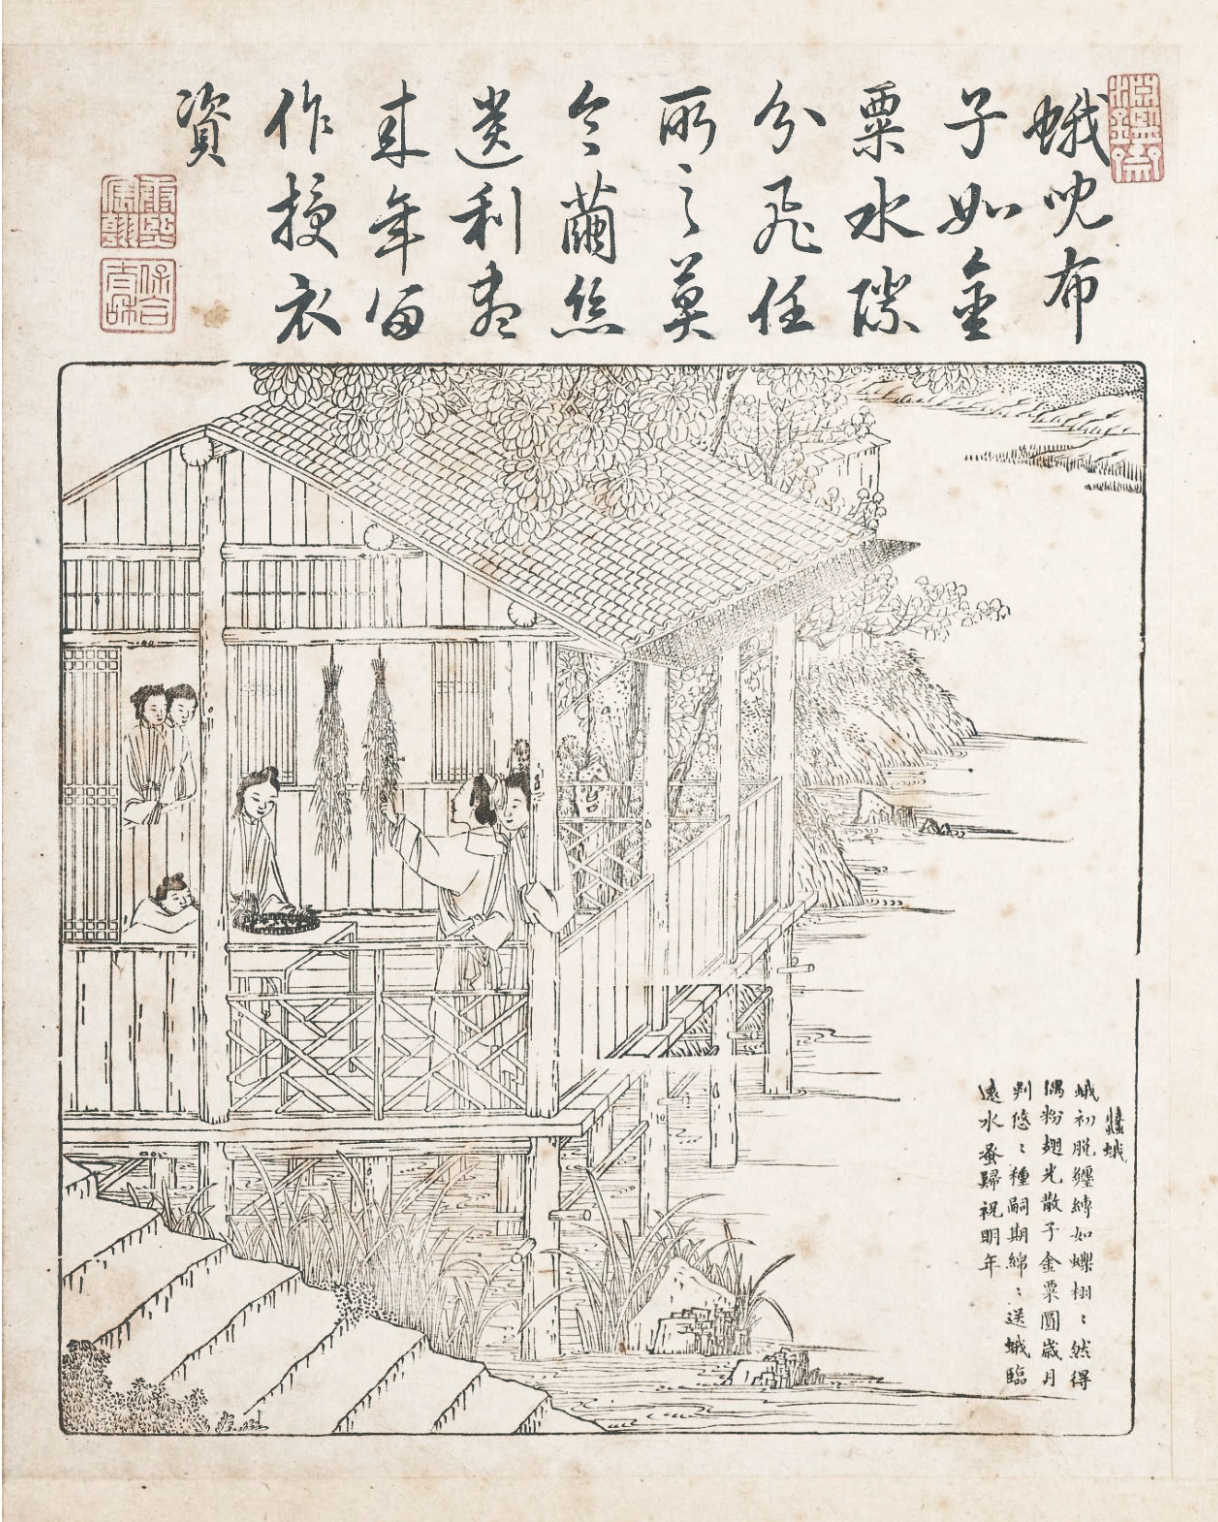 蛾兒布
子如金
粟水隙
分飛任
所之莫
令繭絲
遺利盡
来年留
作授衣
資
蠶蛾
蛾初脫纏縛如蝶栩〻然得
偶粉翅光散子金粟圓歲月
判悠〻種嗣期綿〻送蛾臨
遠水蚕歸祝明年